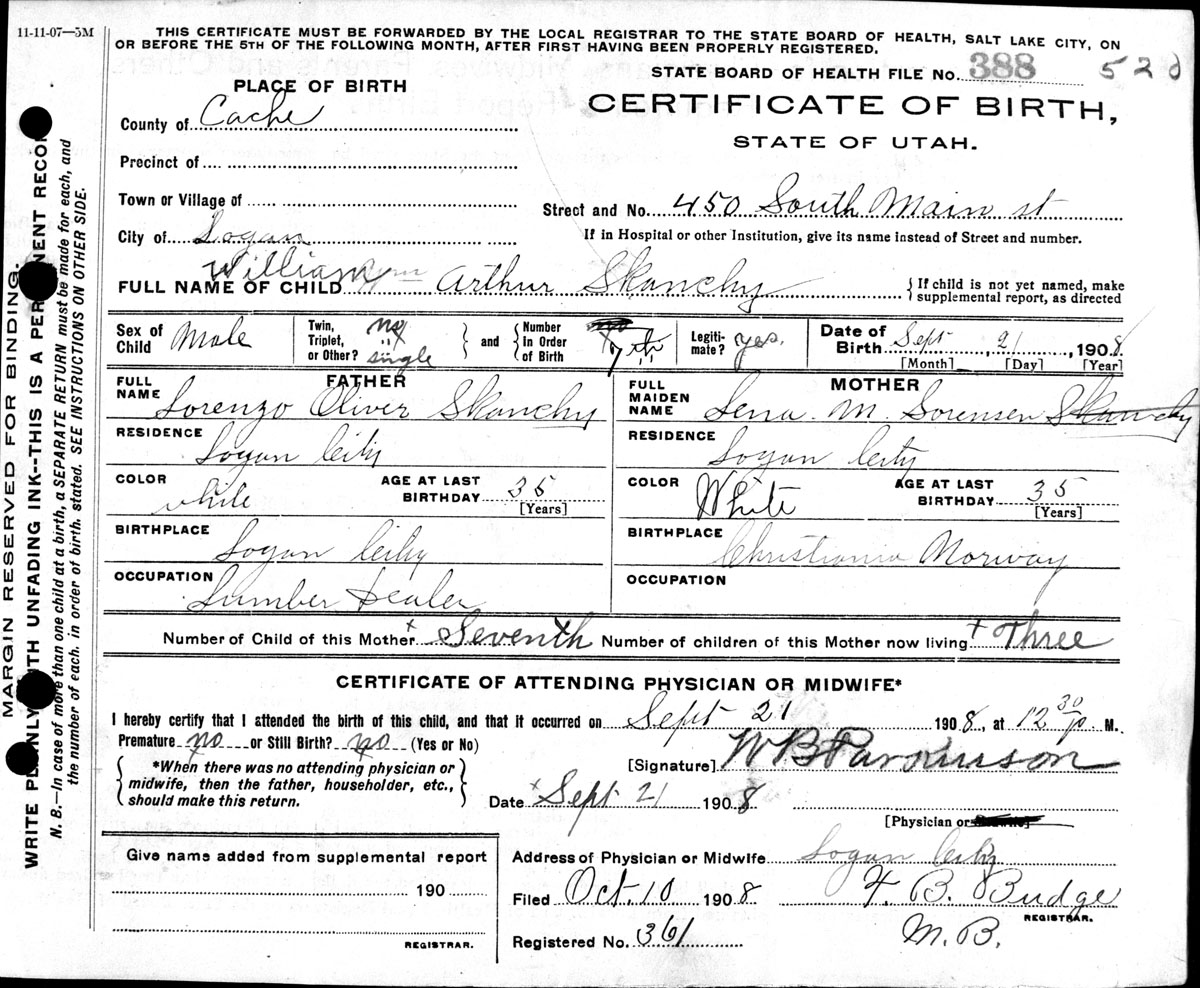 11-11-07—5M
THIS CERTIFICATE MUST BE FORWARDED BY THE LOCAL REGISTRAR TO THE STATE BOARD OF HEALTH, SALT LAKE CITY, ON
OR BEFORE THE 5TH OF THE FOLLOWING MONTH, AFTER FIRST HAVING BEEN PROPERLY REGISTERED.
STATE BOARD OF HEALTH FILE No. 388 520
PLACE OF BIRTH
CERTIFICATE OF BIRTH,
STATE OF UTAH.
County of Cache
Precinct of
Town or Village of
Street and No. 450 South Main st
City of Logan
If in Hospital or other Institution, give its name instead of Street and number.
FULL NAME OF CHILD William Wm Arthur Skanchy
{ If child is not yet named, make
supplemental report, as directed
Sex of Child Male
Twin, Triplet, or Other? no single
and
Number in Order of Birth 7th
Legiti- mate? yes.
Date of Birth Sept 21, 1908
[Month] [Day] [Year]
FATHER
FULL NAME Lorenzo Oliver Skanchy
RESIDENCE Logan City
COLOR white
AGE AT LAST BIRTHDAY 35 [Years]
BIRTHPLACE Logan City
OCCUPATION Lumber Dealer
MOTHER
FULL MAIDEN NAME Lena M. Sorensen Skanchy
RESIDENCE Logan City
COLOR White
AGE AT LAST BIRTHDAY 35 [Years]
BIRTHPLACE Christiania Norway
OCCUPATION
Number of Child of this Mother Seventh Number of children of this Mother now living Three
CERTIFICATE OF ATTENDING PHYSICIAN OR MIDWIFE*
I hereby certify that I attended the birth of this child, and that it occurred on Sept 21 1908, at 12 30 p M.
Premature no or Still Birth? no (Yes or No)
*When there was no attending physician or
midwife, then the father, householder, etc.,
should make this return.
[Signature] W B Parkinson
Date Sept 21 1908
[Physician or Midwife]
Give name added from supplemental report
190
REGISTRAR.
Address of Physician or Midwife Logan City
Filed Oct. 10 1908 F. B. Budge
REGISTRAR.
Registered No. 361 M. B.
MARGIN RESERVED FOR BINDING.
WRITE PLAINLY WITH UNFADING INK--THIS IS A PERMANENT RECORD
N. B.—In case of more than one child at a birth, a SEPARATE RETURN must be made for each, and
the number of each, in order of birth, stated. SEE INSTRUCTIONS ON OTHER SIDE.